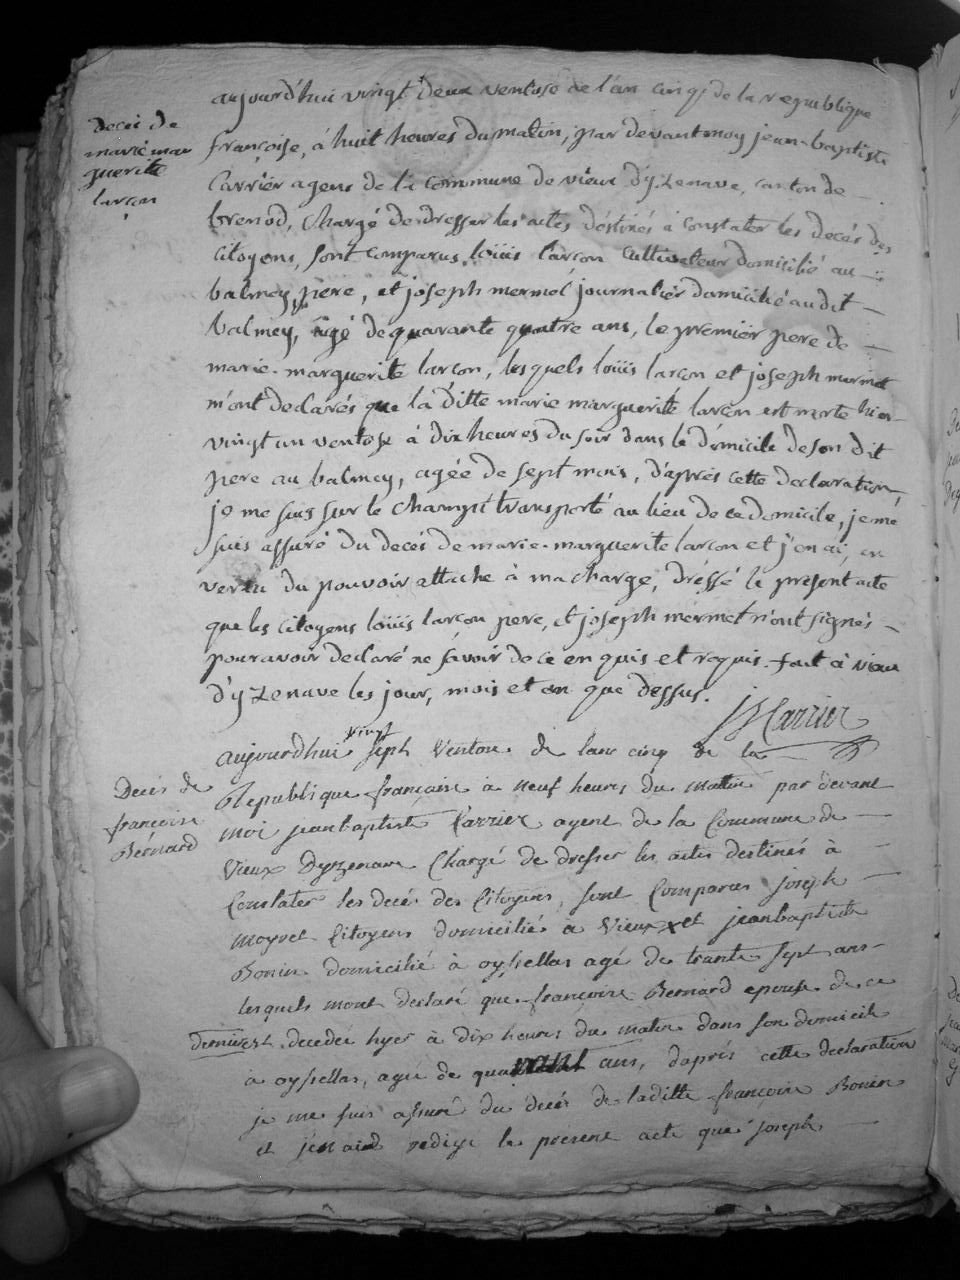 décès de
marie mar
guerite
larçon
aujourd'hui vingt deux ventose de l'an cinq de la république
françoise, à huit heures du matin, par devant moy jean-baptiste
Carrier agent de la commune de vieux d'yzenave, canton de
brenod, chargé de dresser les actes déstinés à constater les decés des
citoyens, sont comparus loüis larçon cultivateur domicilié au
balmey, père, et joseph mermet journalier domicilié au dit
balmey, âgé de quarante quatre ans, le premier pere de
marie-marguerite larçon, lesquels loüis larçon et joseph mermet
m'ont declarés que la ditte marie marguerite larçon est morte hier
vingt un ventose à dix heures du soir dans le domicile de son dit
pere au balmey, agée de sept mois, d'après cette declaration,
je me suis sur le champt transporté au lieu de ce domicile, je me
suis assuré du decés de marie-marguerite larçon et j'en ai, en
vertu du pouvoir attaché à ma charge, dréssé le présent acte
que les citoyens loüis larçon pere, et joseph mermet n'ont signés
pour avoir declaré ne savoir de ce enquis et requis. fait à vieux
d'yzenave les jour, mois et an que dessus.
JB Carrier
Decés de
françoise
Bernard
vingt
aujourdhui sept Ventose de lans cinq de la
Republique françoise à neuf heures du matin par devant
moi jeanbaptiste Carrier agent de la Commune de
Vieux Dyzenave Chargé de dresser les actes destinés à
Constater les decés des Citoyens, sont Comparus joseph
moyret Citoyens domicilié a Vieux et jeanbaptiste
Bonin domicilié à oysellas agé de trante sept ans
lesquels mont declaré que françoise Bernard epouse de ce
dernier est decedée hyer à dix heures du matin dans son domicile
à oysellas, agee de quarante ans, daprés cette declaration
je me suis assuré du decés de laditte françoise Bonin
et jen aid redigé le present acte que joseph